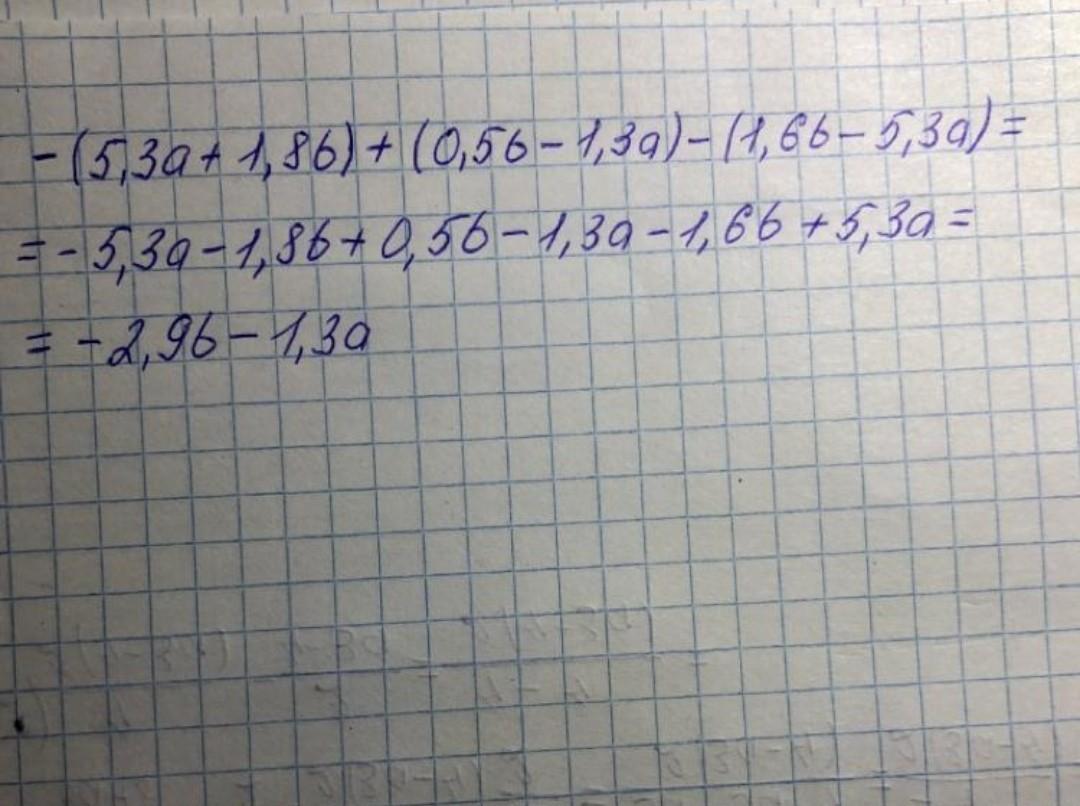 -(5,3a+1,8b)+(0,5b-1,3a)-(1,6b-5,3a)=
=-5,3a-1,8b+0,5b-1,3a-1,6b+5,3a=
=-2,9b-1,3a